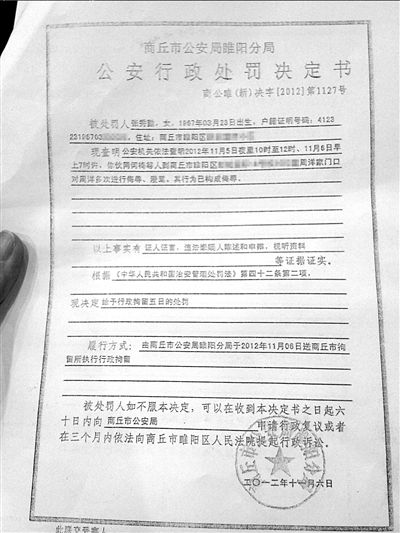 商丘市公安局睢阳分局
公安行政处罚决定书
商公睢(新)决字[2012]第1127号
被处罚人张秀勤,女,1967年03月23日出生,户籍证明号码:4123
23196703 ,住址:商丘市睢阳区
现查明公安机关依法查明2012年11月5日夜里10时至12时、11月6日早
上7时许,你伙同他等人到商丘市睢阳区 周洋家门口
对周洋多次进行侮辱、谩骂,其行为已构成侮辱。
以上事实有 证人证言,违法嫌疑人陈述和申辩,视听资料
等证据证实。
根据《中华人民共和国治安管理处罚法》第四十二条第二项,
现决定 给予行政拘留五日的处罚
履行方式:由商丘市公安局睢阳分局于2012年11月06日送商丘市拘
留所执行行政拘留
被处罚人如不服本决定,可以在收到本决定书之日起六
十日内向 商丘市公安局 申请行政复议或者
在三个月内依法向商丘市睢阳区人民法院提起行政诉讼。
二〇一二年十一月六日